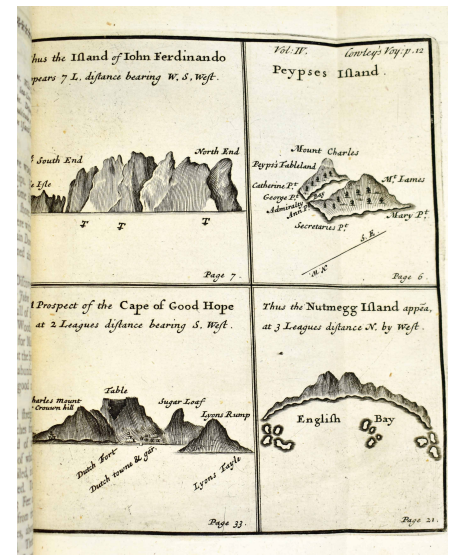 hus the Iſland of Iohn Ferdinando
pears 7 L. diſtance bearing W, S, Weſt.
South End
North End
e Iſle
Page 7.
Vol: IV. Cowley's Voy: p. 12
Peypses Iſland.
Mount Charles
Peyps's Tableland
Mt. Iames
Catherine Pt.
George Pt.
Bay
Admiralty
Ann Pt.
Mary Pt.
Secretaries Pt.
S. E.
Page 6.
Prospect of the Cape of Good Hope
at 2 Leagues diſtance bearing S, Weſt.
Table
harles mount
Crouwn hill
Sugar Loaf
Lyons Rump
Dutch Fort
Dutch towne & gar.
Lyons Tayle
Page 33.
Thus the Nutmegg Iſland appēa,
at 3 Leagues diſtance N. by Weſt.
Engliſh Bay
Page 21.